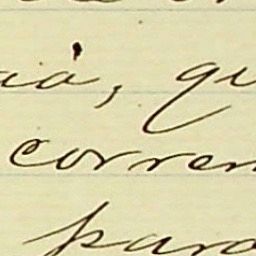 ià, qu
corren
para